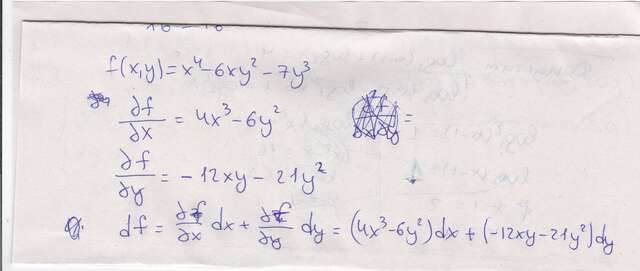 f(x,y)=x⁴-6xy²-7y³
∂f/∂x = 4x³-6y²
∂f/∂y = -12xy-21y²
df = ∂f/∂x dx + ∂f/∂y dy = (4x³-6y²)dx + (-12xy-21y²)dy